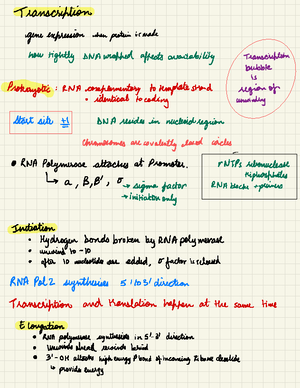 Transcription
gene expression when protein is made
how tightly DNA wrapped affects availability
Transcription
bubble
is
region of
unwinding
Prokaryotic: RNA complementary to template strand
• identical to coding
Start site +1
DNA resides in nucleoid region
Chromosomes are covalently closed circles
• RNA Polymerase attaches at Promoter.
↳ a, B, B', σ
→ sigma factor
→ initiation only
rNTPs ribonucleoside
triphosphates
RNA + primers
Initiation
• Hydrogen bonds broken by RNA polymerase
• unwinds 10-10
• after 10 nucleotides are added, σ factor is released
RNA Pol 2 synthesises 5' to 3' direction
Transcription and translation happen at the same time
Elongation
• RNA polymerase synthesises in 5'-3' direction
• Unwinds ahead, rewinds behind
• 3'-OH attacks high energy P bond of incoming
↳ provide energy